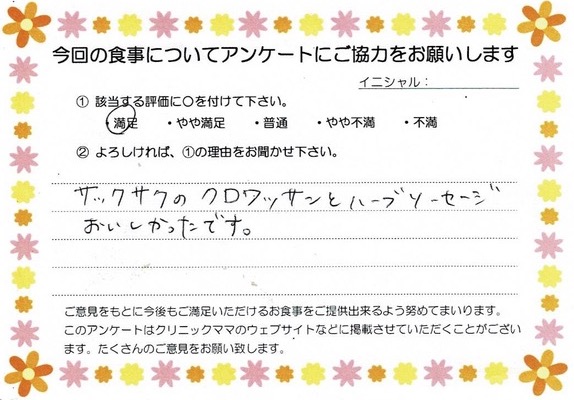 今回の食事についてアンケートにご協力をお願いします
イニシャル：
① 該当する評価に〇を付けて下さい。
・満足 ・やや満足 ・普通 ・やや不満 ・不満
② よろしければ、①の理由をお聞かせ下さい。
ザックサクのクロワッサンとハーブソーセージ
おいしかったです。
ご意見をもとに今後もご満足いただけるお食事をご提供出来るよう努めてまいります。
このアンケートはクリニックママのウェブサイトなどに掲載させていただくことがござい
ます。たくさんのご意見をお願い致します。